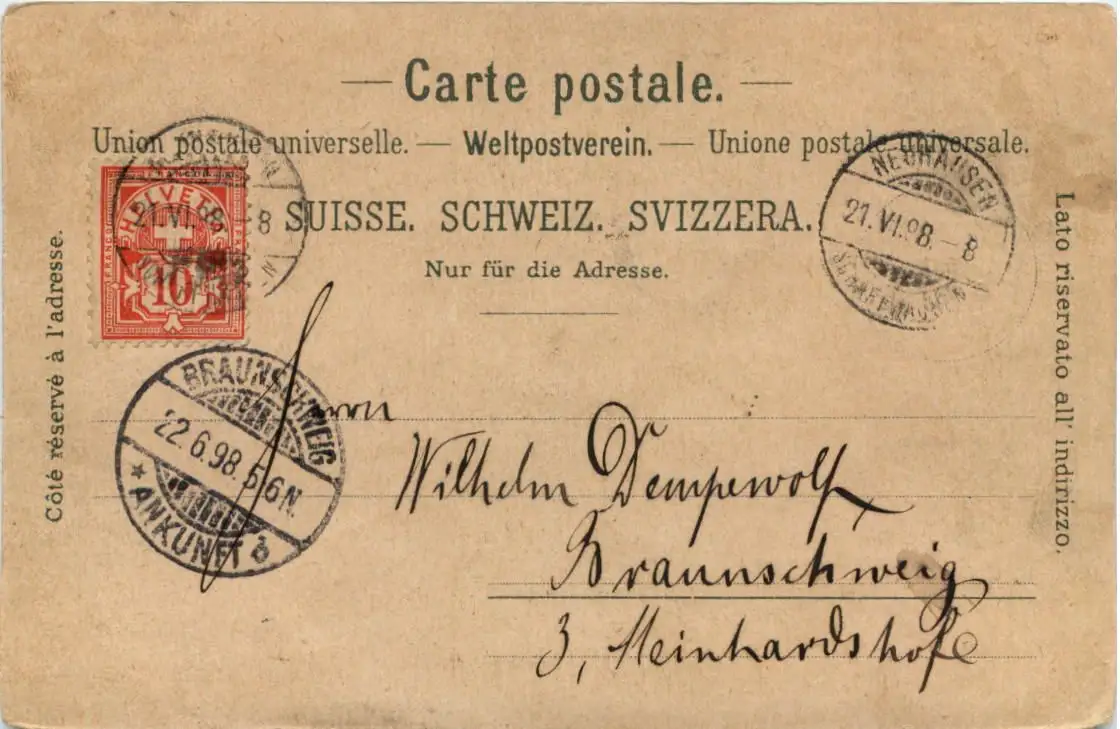 Carte postale.
Union postale universelle. — Weltpostverein. — Unione postale universale.
SUISSE. SCHWEIZ. SVIZZERA.
Nur für die Adresse.
Côté réservé à l'adresse.
Lato riservato all' indirizzo.
HELVETIA
FRANCO
10
NEUHAUSEN
21.VI.98.-8
SCHAFFHAUSEN
NEUHAUSEN
21.VI.98.-8
BRAUNSCHWEIG
22.6.98.5-6N.
* ANKUNFT d
Herrn
Wilhelm Dempewolf
Braunschweig
3, Meinhardshofe